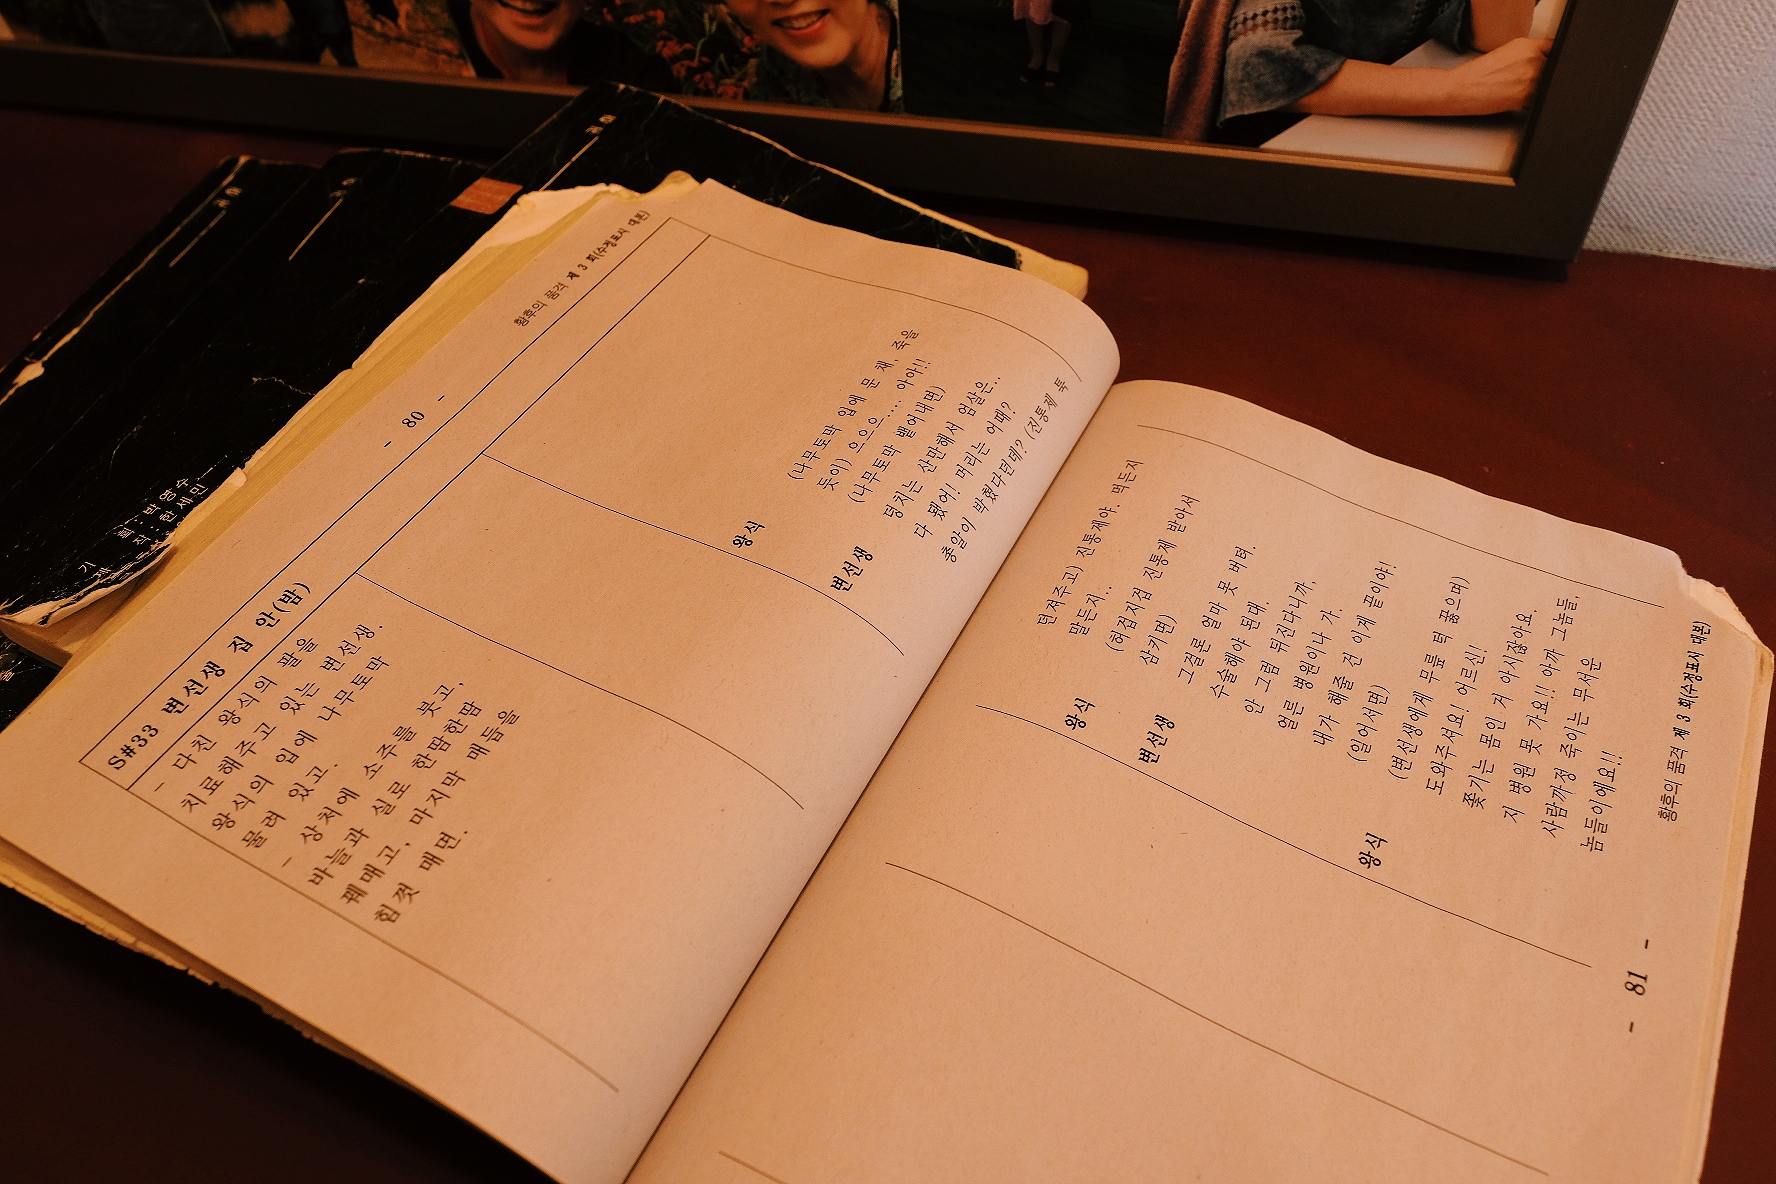 황후의 품격 제 3 회(수정표시 대본)
- 80 -
S#33 변선생 집 안(밤)
- 다친 왕식의 팔을
치료해주고 있는 변선생.
왕식의 입에 나무토막
물려 있고.
- 상처에 소주를 붓고,
바늘과 실로 한땀한땀
꿰매고, 마지막 매듭을
힘껏 매면.
왕식
(나무토막 입에 문 채, 죽을
듯이) 으으으..... 아아!!
(나무토막 뱉어내면)
변선생
덩치는 산만해서 엄살은..
다 됐어! 머리는 어때?
총알이 박혔다던데? (진통제 툭
던져주고) 진통제야. 먹든지
말든지..
왕식
(허겁지겁 진통제 받아서
삼키면)
변선생
그걸론 얼마 못 버텨.
수술해야 된대.
안 그럼 뒤진다니까,
얼른 병원이나 가.
내가 해줄 건 이게 끝이야!
(일어서면)
왕식
(변선생에게 무릎 턱 꿇으며)
도와주서요! 어르신!
쫓기는 몸인 거 아시잖아요.
저 병원 못 가요!! 아까 그놈들,
사람까정 죽이는 무서운
놈들이에요!!
황후의 품격 제 3 회(수정표시 대본)
- 81 -